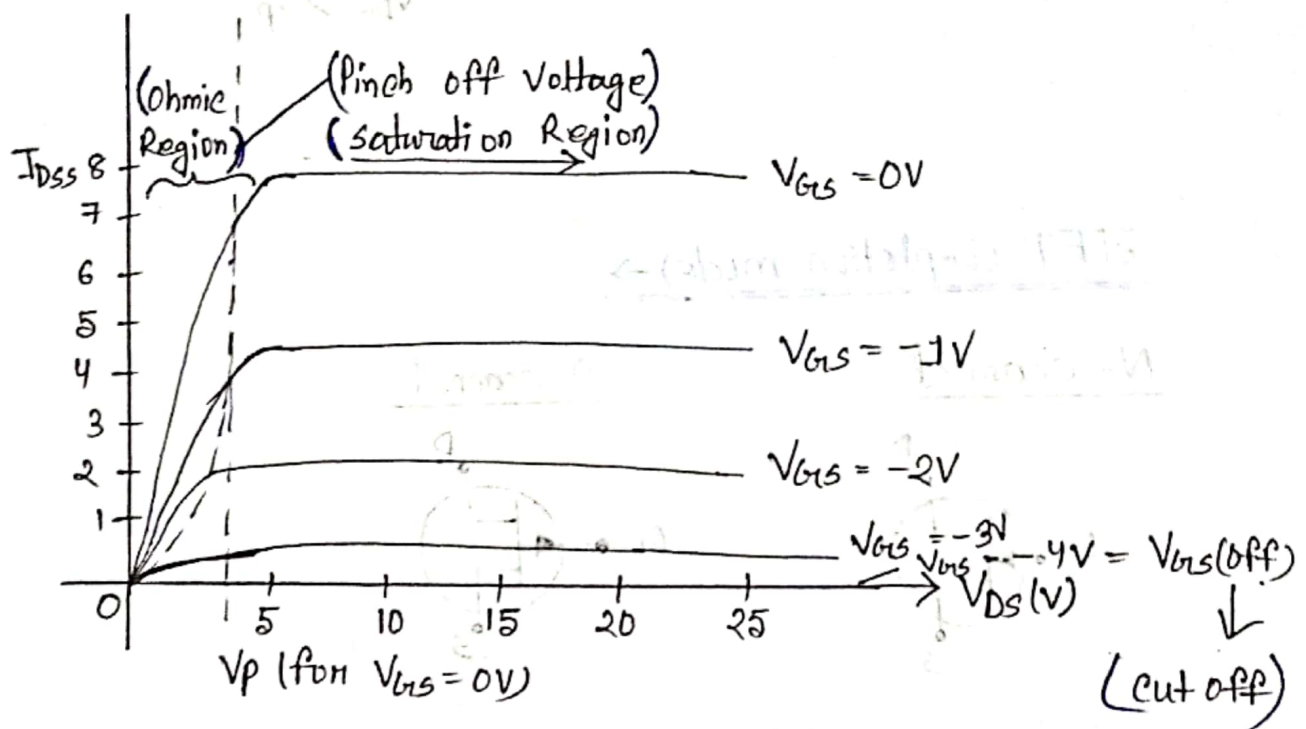 (Ohmic
Region)
(Pinch off Voltage)
(saturation Region)
IDSS 8
7
6
5
4
3
2
1
0
5
10
15
20
25
VGS = 0V
VGS = -1V
VGS = -2V
VGS = -3V
VGS = -4V = VGS(off)
VDS (V)
(cut off)
Vp (for VGS = 0V)